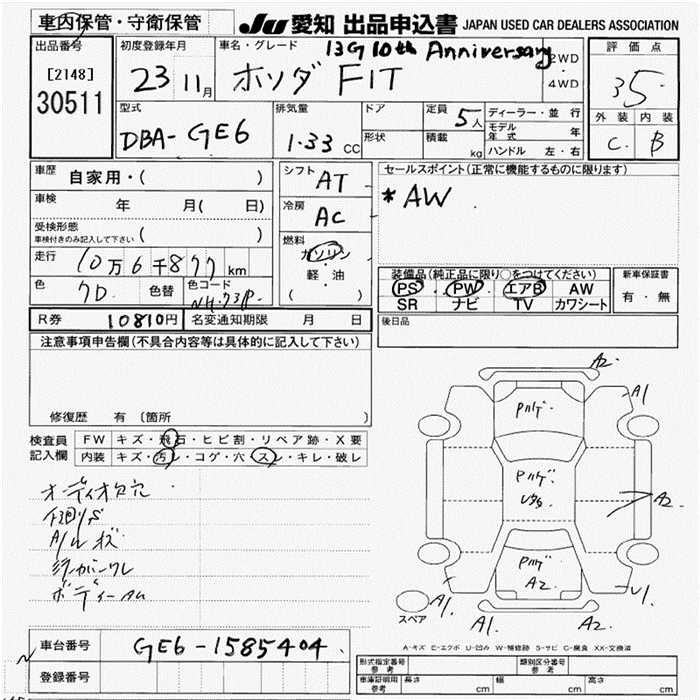 車内保管・守衛保管
JU 愛知 出品申込書 JAPAN USED CAR DEALERS ASSOCIATION
出品番号
[2148]
30511
初度登録年月
23 11月
車名・グレード
13G 10th Anniversary
ホンダ FIT
2WD
・
4WD
評価点
35
外装 内装
C B
型式
DBA-GE6
排気量
1.33 CC
ドア
形状
定員 5人
積載 kg
ディーラー・並行
モデル年式 年
ハンドル 左・右
車歴 自家用・( )
車検 年 月( 日)
受検形態
車検付きのみ記入して下さい ( )
走行 10万6千877 km
色 7D 色替 色コード
シフト AT
冷房 AC
燃料
ガソリン
・
軽・油
( )
セールスポイント(正常に機能するものに限ります)
*AW
装備品(純正品に限り○をつけてください)
PS PW エアB AW
SR ナビ TV カワシート
新車保証書
有・無
R券 10810円 名変通知期限 月 日
後日品
注意事項申告欄(不具合内容等は具体的に記入して下さい)
修復歴 有 〔箇所 〕
検査員
記入欄
FW キズ・飛石・ヒビ割・リペア跡・X要
内装 キズ・汚レ・コゲ・穴・スレ・キレ・破レ
A2
A1
A2
A2
A1
A1
U1
A2
スペア
A-キズ E-エクボ U-凹み W-補修跡 S-サビ C-腐食 XX-交換済
車台番号 GE6-1585404
登録番号
型式指定番号
参考
類別区分番号
参考
車庫証明用
参考
長さ cm 幅 cm 高さ cm